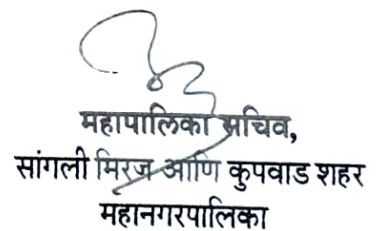 महापालिका सचिव,
सांगली मिरज आणि कुपवाड शहर
महानगरपालिका